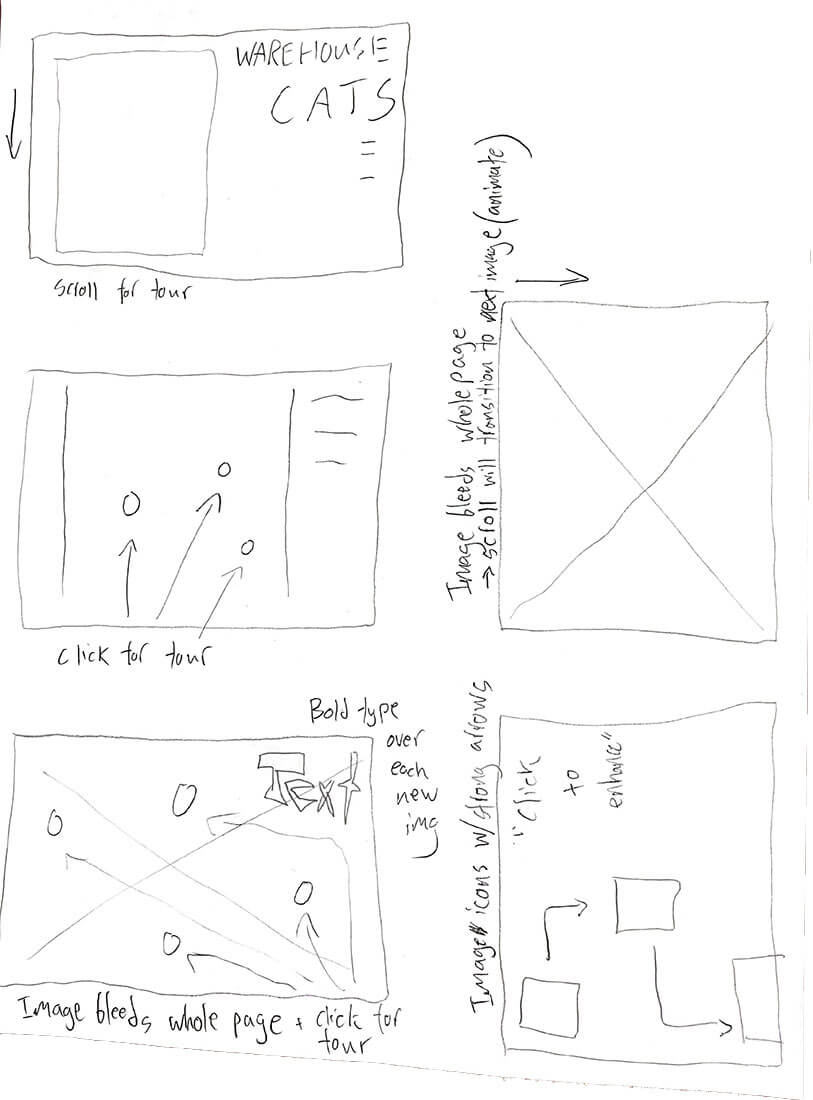 WAREHOUSE
CATS
Scroll for tour
Click for tour
Bold type
over
each
new
img
Text
Image bleeds whole page + click for
tour
Image bleeds whole page
→ scroll will transition to next image (animate)
Image icons w/strong arrows
"Click
to
enhance"